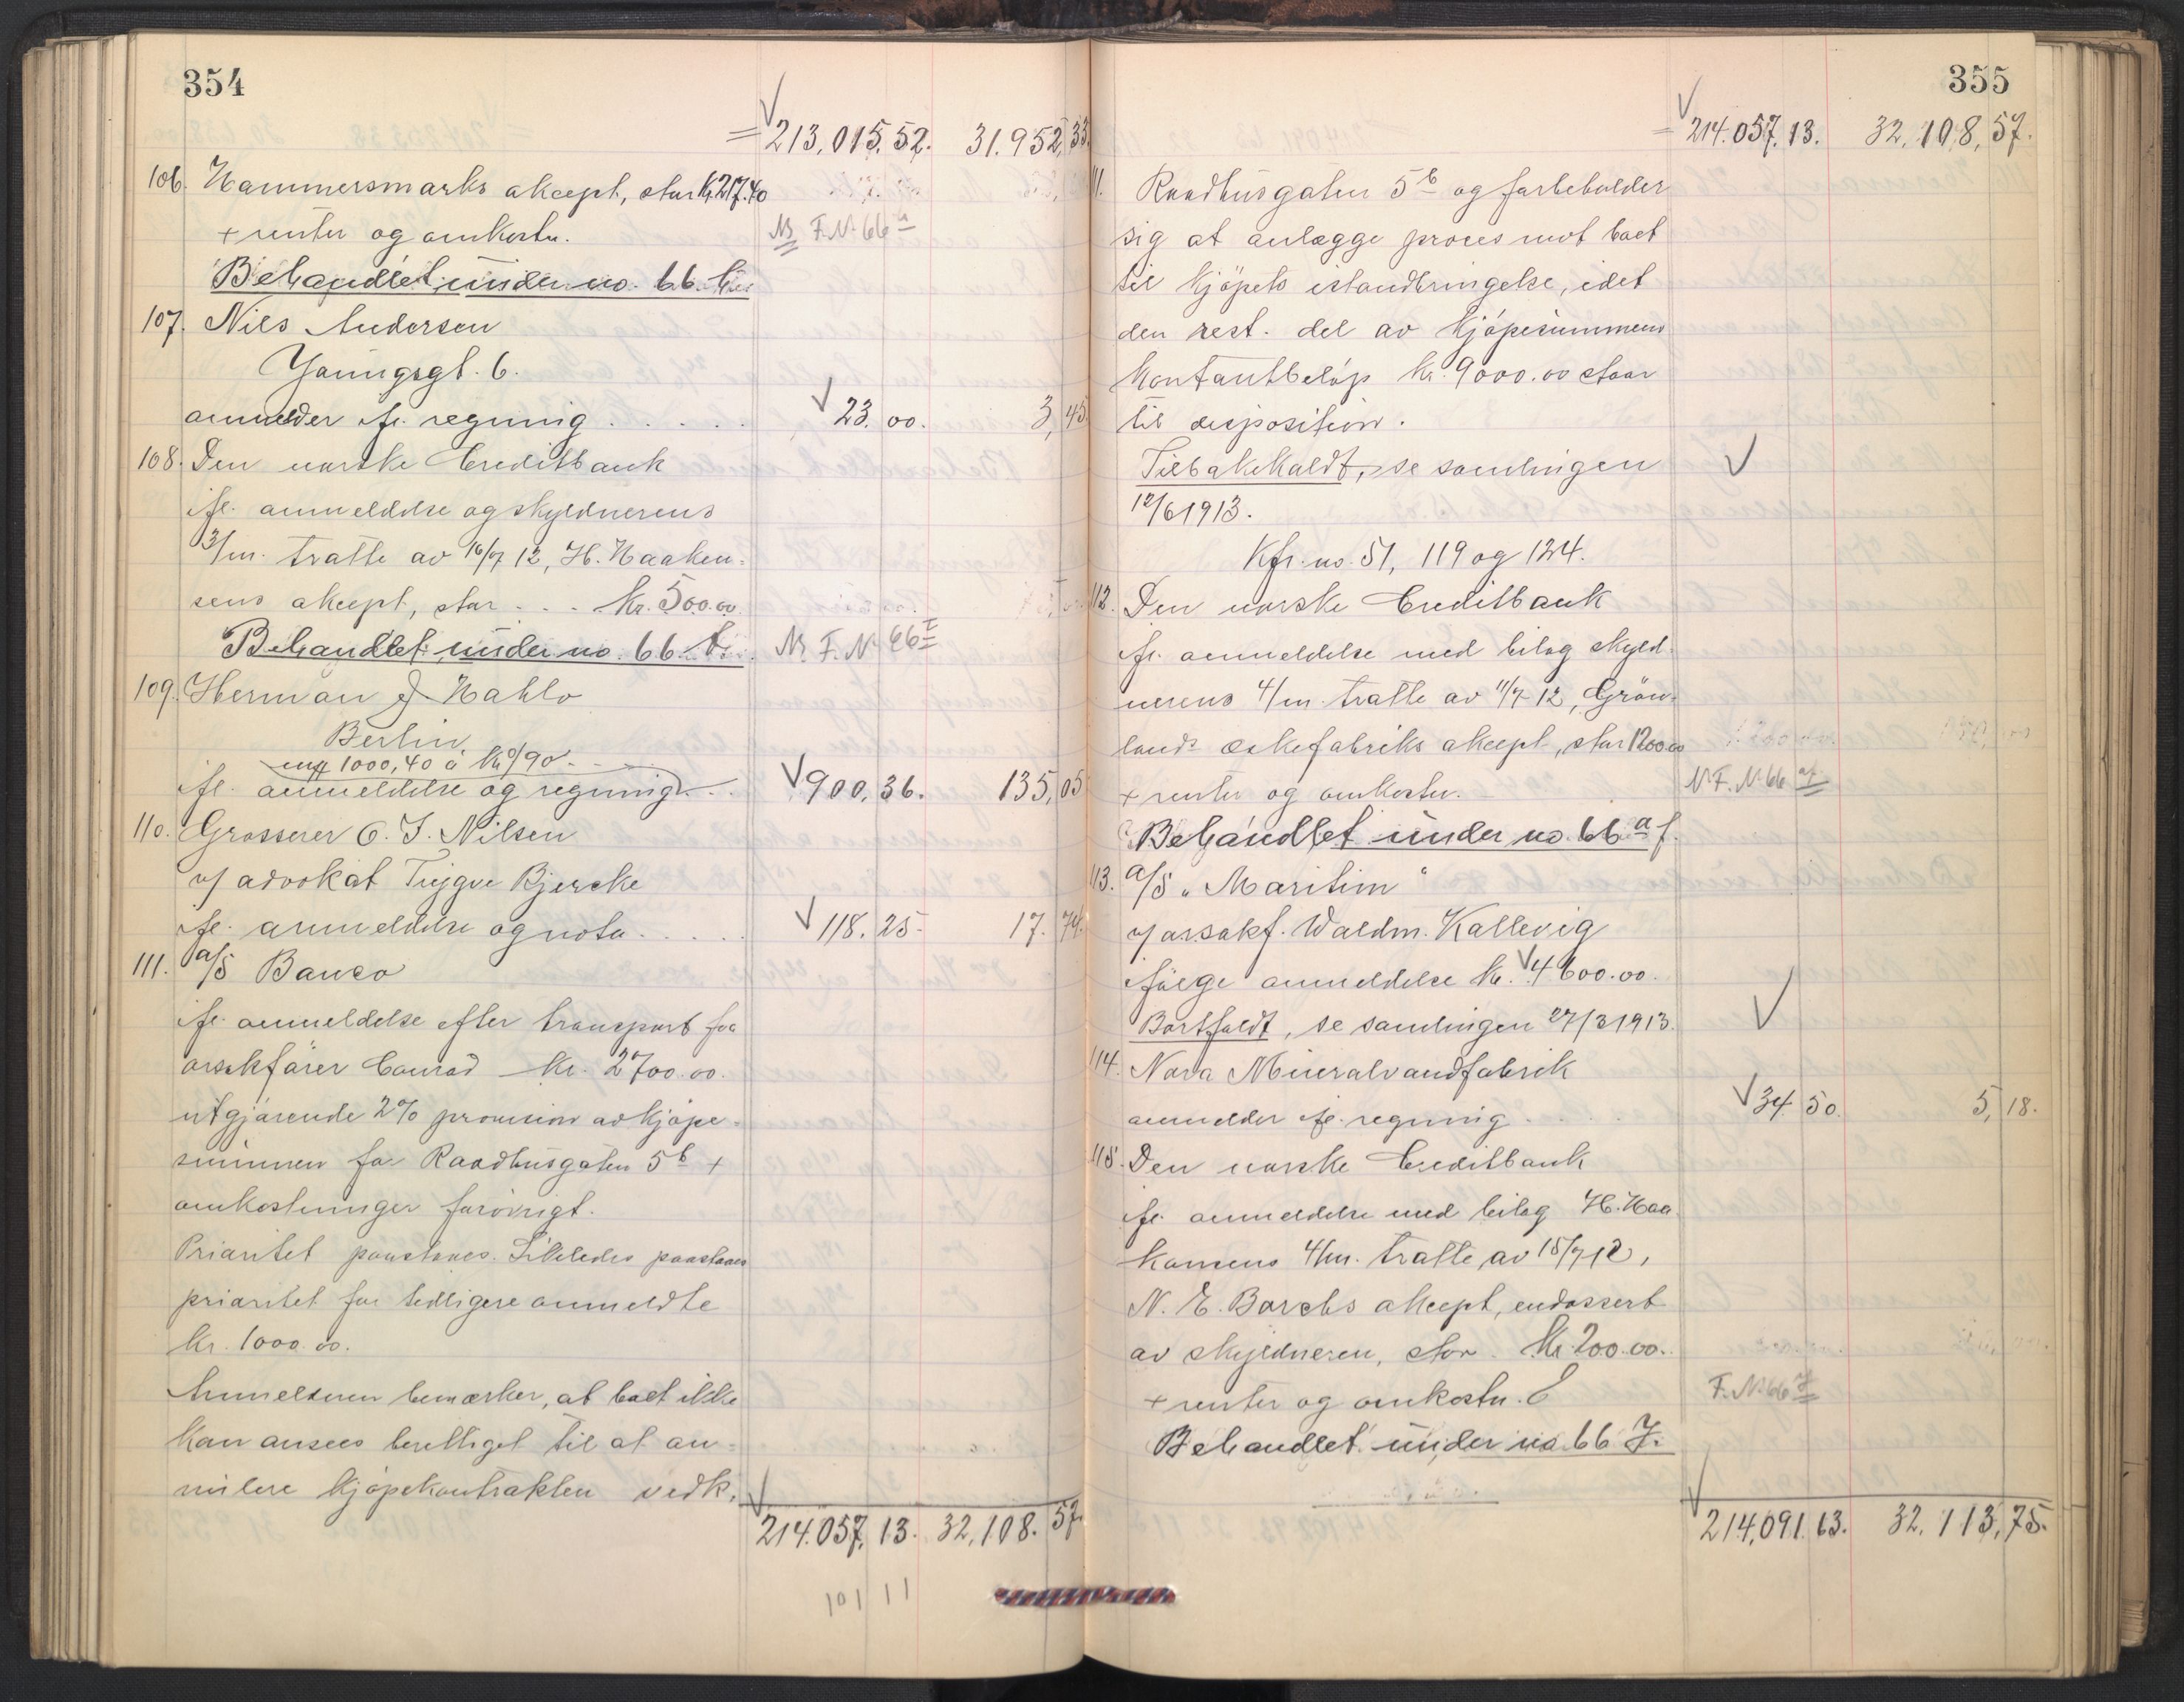 354
= 213,015,52. 31.952,33
106. Hammersmarks akcept, stor kr. 217.40
+ renter og omkostn.
Nr F. N. 66 u
Behandlet under no. 66
107. Nils Andersen
Youngsgt. 6.
anmelder ifl. regning . . . . . 23.00. 3,45
108. Den norske Creditbank
ifl. anmeldelse og skyldnerens
3/m. tratte av 16/7 12, H. Haaken-
sens akcept, stor . . . kr. 500.00.
Behandlet under no. 66 Nr. F. N. 66
109. Herman J. Kahlo
Berlin
1000,40 á kr 0/90
ifl. anmeldelse og regning . . . 900,36. 135,05
110. Grosserer O. J. Nilsen
v/ advokat Trygve Bjercke
ifl. anmeldelse og nota . . . . . 118.25 17.74
111. A/S Banco
ifl. anmeldelse efter transport fra
orsakfører Conrad kr. 2700.00.
utgjørende 2% provision av kjøpe-
summen for Raadhusgaten 5b +
omkostninger forøvrigt.
Prioritet paastaaes. Likeledes paastaaes
prioritet for tidligere anmeldte
kr. 1000.00.
Anmelderen bemærker, at boet ikke
kan ansees berettiget til at an-
nulere kjøpekontrakten vedk.
214.057,13. 32,108.57
101 11
355
= 214.057,13. 32,108,57.
111. Raadhusgaten 5b og forbeholder
sig at anlægge proces mot boet
til kjøpets istandbringelse, idet
den rest. del av kjøpesummens
kontantbeløp kr. 9000.00 staar
til disposition.
Tilbakekaldt, se samlingen
12/6 1913.
Kfr. no. 51, 119 og 124.
112. Den norske Creditbank
ifl. anmeldelse med bilag skyld-
nerens 4/m. tratte av 11/7-12, Grøn-
lands æskefabriks akcept, stor 1200.00
+ renter og omkostn. N. F. N. 66 af
Behandlet under no. 66 a f.
113. A/S "Maritim"
v/ orsakf. Waldm. Kallevig
ifølge anmeldelse kr. 4600.00.
Bortfaldt, se samlingen 27/3 1913.
114. Nora Mineralvandfabrik
anmelder ifl. regning . . . . 34.50. 5,18.
115. Den norske Creditbank
ifl. anmeldelse med bilag H. Haa-
konsens 4/m. tratte av 15/7-12,
N. E. Borchs akcept, endossert
av skyldneren, stor kr. 200.00.
+ renter og omkostn. F. N. 66 J
Behandlet under no. 66 J.
214,091.63. 32,113,75.